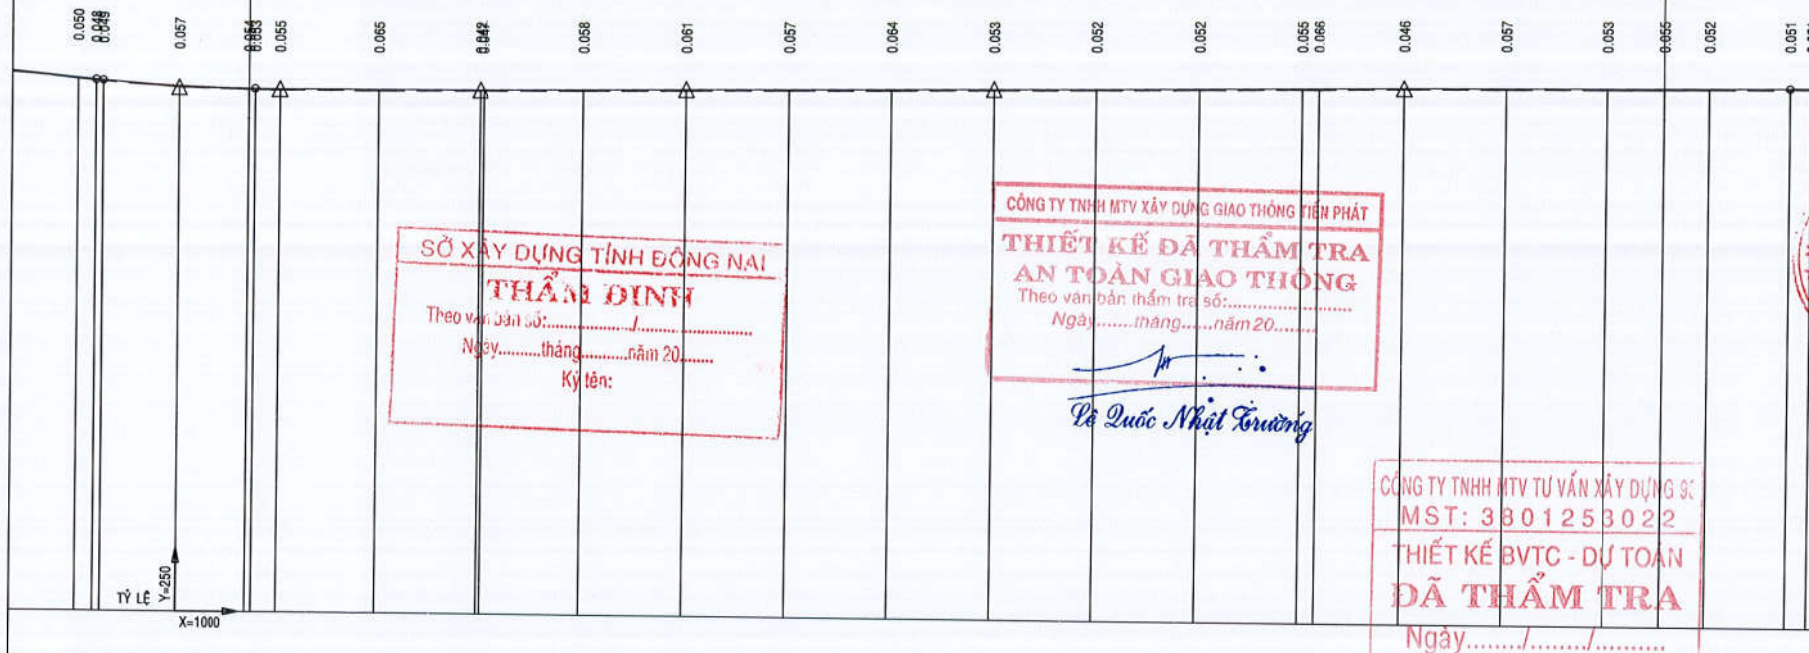 0.050
0.048
0.049
0.057
0.053
0.055
0.065
0.058
0.061
0.057
0.064
0.053
0.052
0.052
0.055
0.066
0.046
0.057
0.053
0.052
0.051
SỞ XÂY DỰNG TỈNH ĐỒNG NAI
THẨM ĐỊNH
Theo văn bản số:............../..................
Ngày.........tháng.........năm 20.......
Ký tên:
CÔNG TY TNHH MTV XÂY DỰNG GIAO THÔNG TIẾN PHÁT
THIẾT KẾ ĐÃ THẨM TRA
AN TOÀN GIAO THÔNG
Theo văn bản thẩm tra số:......................
Ngày.......tháng......năm 20........
Lê Quốc Nhật Trường
CÔNG TY TNHH MTV TƯ VẤN XÂY DỰNG
MST: 3801253022
THIẾT KẾ BVTC - DỰ TOÁN
ĐÃ THẨM TRA
Ngày......../......../..........
TỶ LỆ
Y=250
X=1000